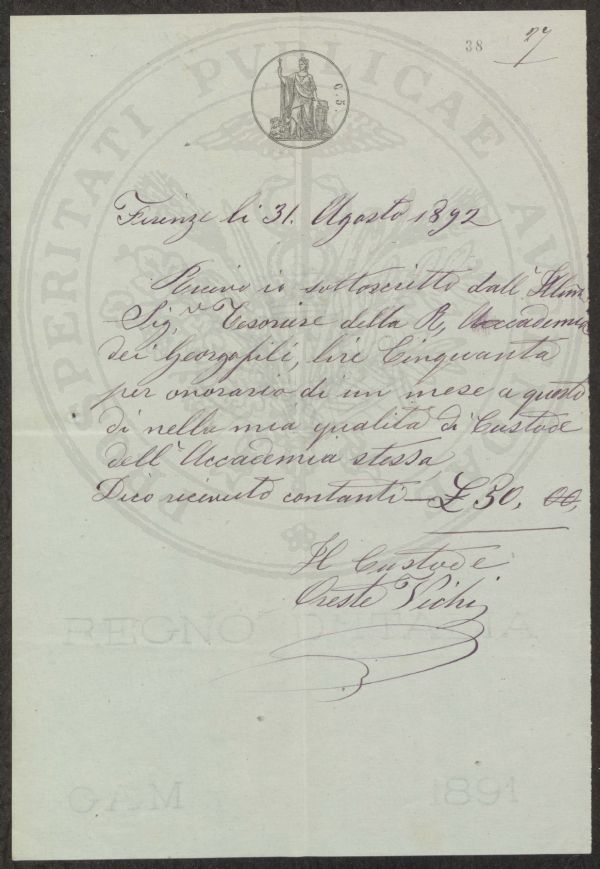 38 27
C. 5.
PROSPERITATI PUBLICAE AUGENDAE
Firenze li 31. Agosto 1892
Ricevo io sottoscritto dall' Illmo
Sig.r Tesoriere della R. Accademia
dei Georgofili, lire Cinquanta
per onorario di un mese a questo
dì nella mia qualità di Custode
dell' Accademia stessa
Dico ricevuto contanti — £ 50, 00,
Il Custode
Oreste Vichi
REGNO D'ITALIA
1891